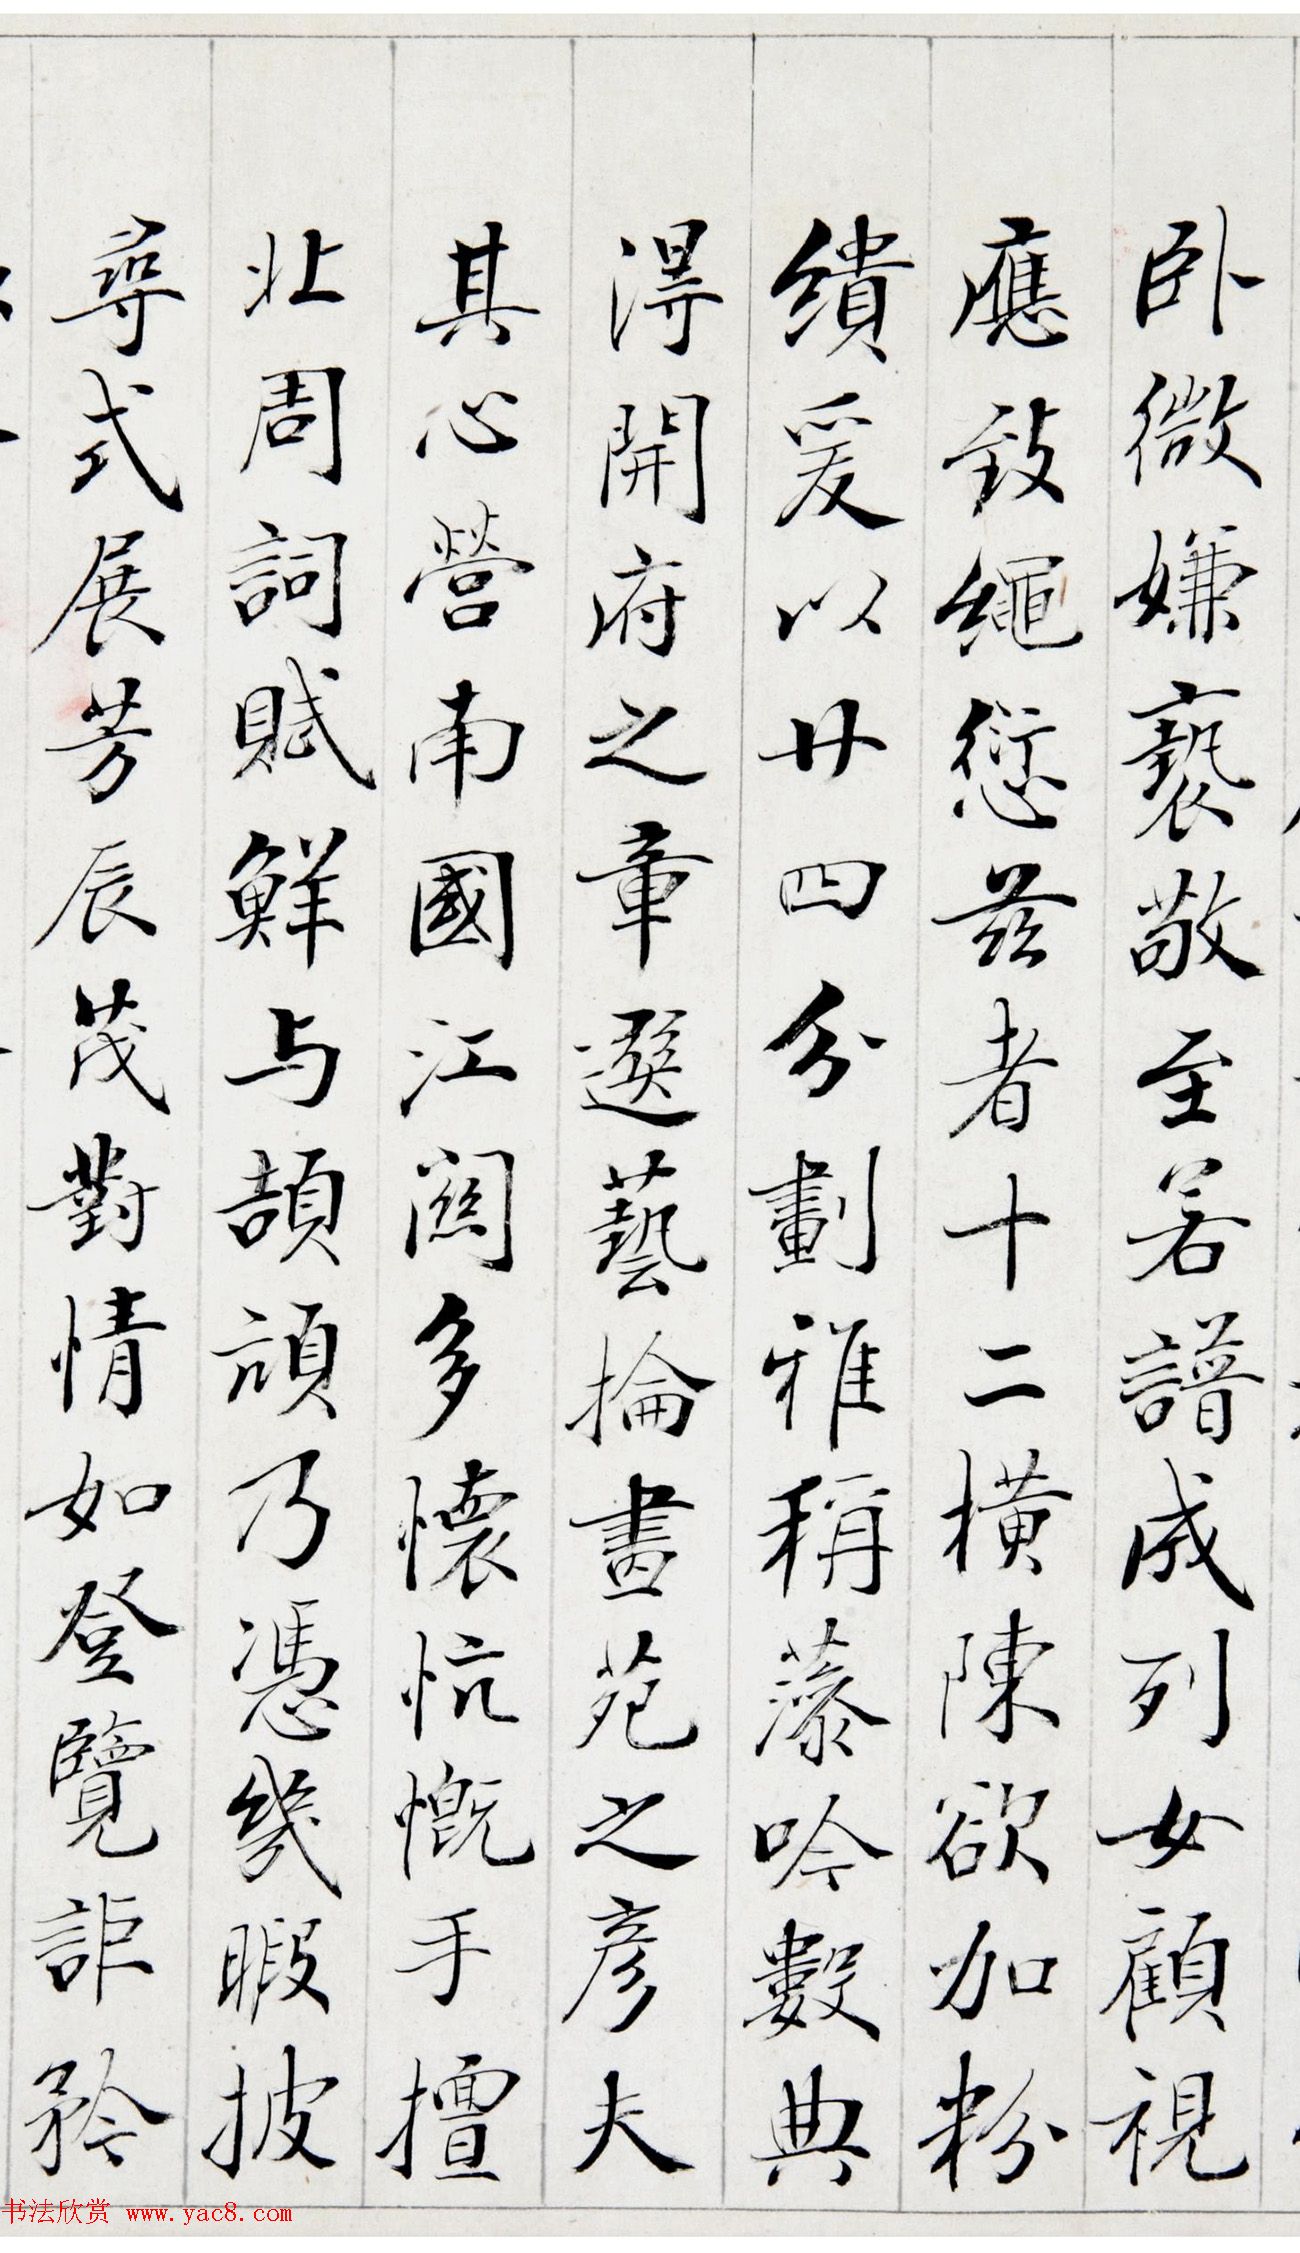 卧微嫌褻敬至若譜成列女顧視
應致繩愆茲者十二橫陳欲加粉
繢爰以廿四分劃雅稱藻吟數典
淂開府之章選藝掄畫苑之彥夫
其心營南國江關多懷忼慨手擅
北周詞賦鮮与頡頏乃憑幾暇披
尋式展芳辰茂對情如登覽詎矜
书法欣赏 www.yac8.com